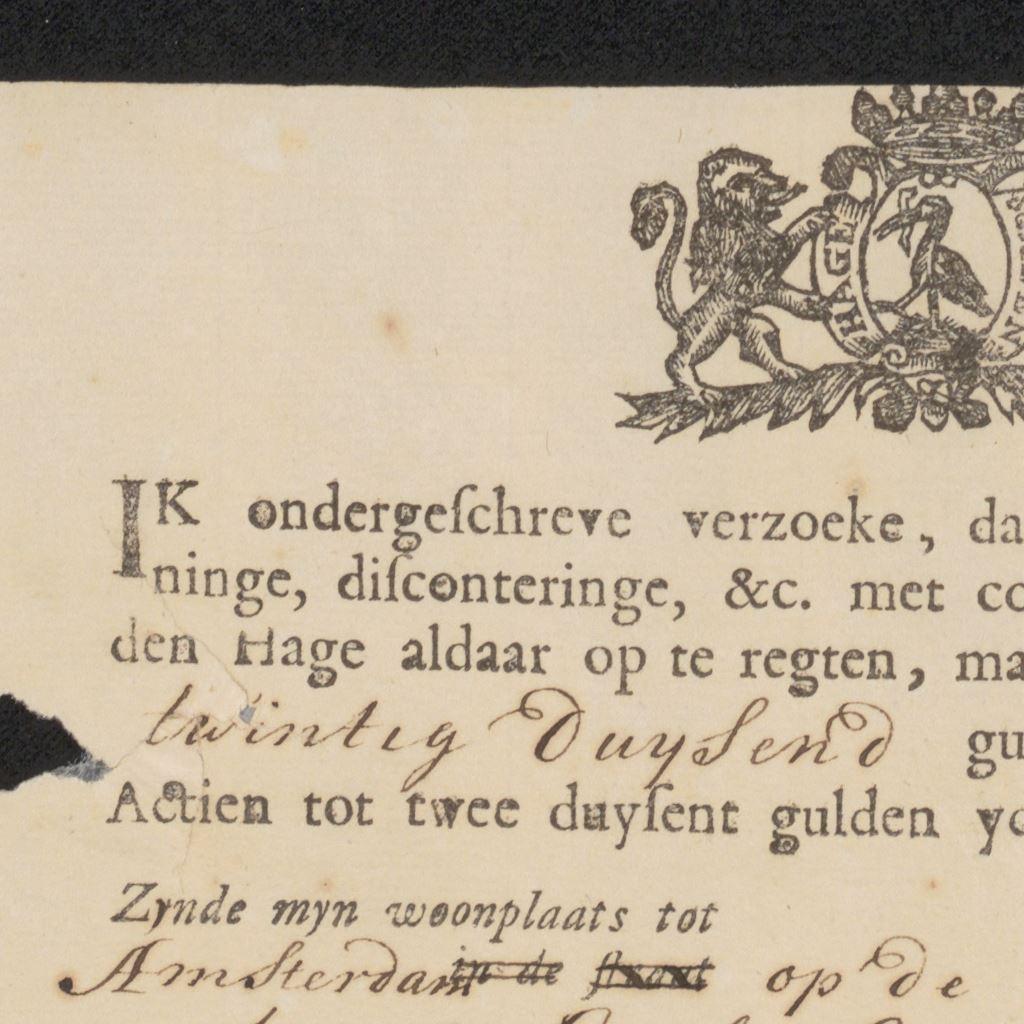 HAGE
IK ondergeſchreve verzoeke, da
ninge, diſconteringe, &c. met co
den Hage aldaar op te regten, ma
twintig Duysend gu
Actien tot twee duyſent gulden yd
Zynde myn woonplaats tot
Amsterdam in de ſtraat op de